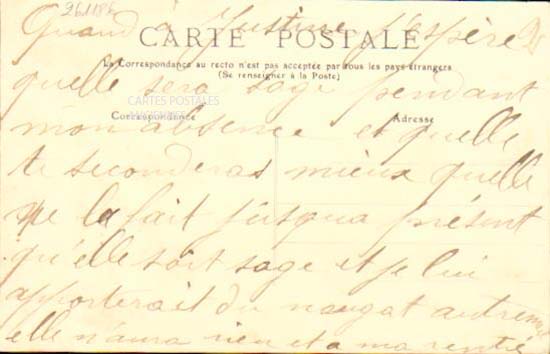 261186
Quand à Justine j'espère
CARTE POSTALE
La Correspondance au recto n'est pas acceptée par tous les pays étrangers
(Se renseigner à la Poste)
quelle sera sage pendant
CARTES POSTALES
ANCIENNES
Correspondance
Adresse
mon absence et quelle
te seconderas mieux quelle
ne la fait jusqua présent
qu'elle soit sage et je lui
apporterait du nougat autrement
elle n'aura rien et a ma rentré